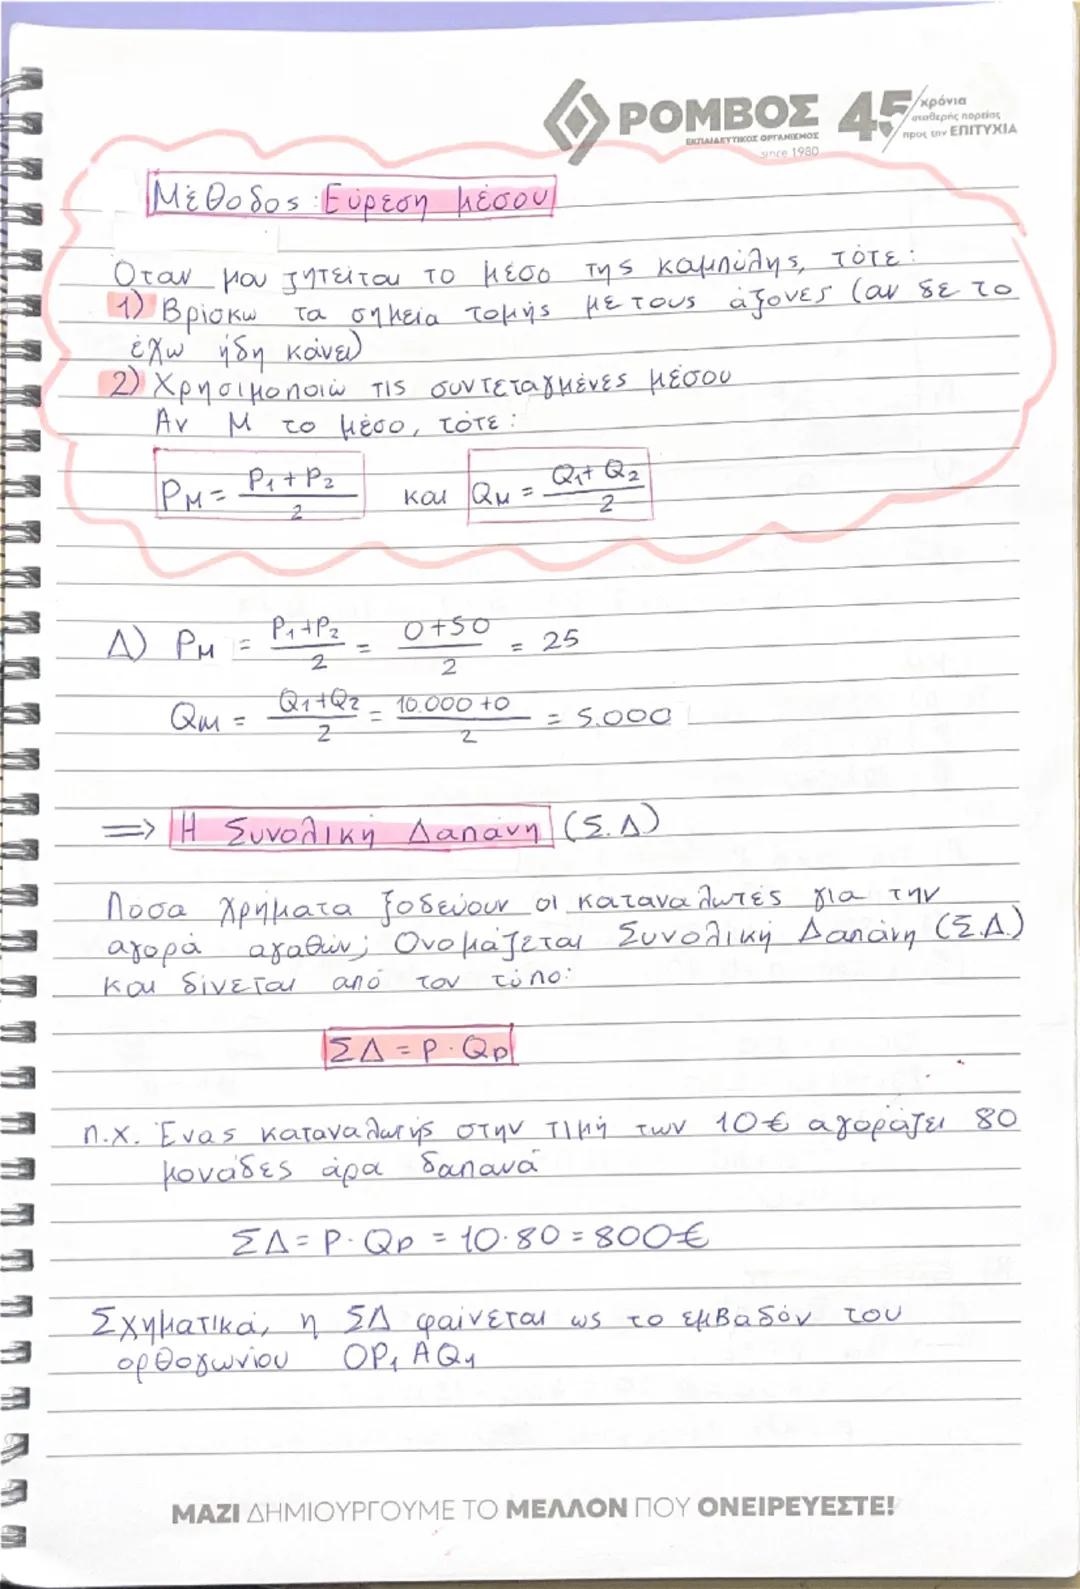 ΡΟΜΒΟΣ
ΕΚΠΑΙΔΕΥΤΙΚΟΣ ΟΡΓΑΝΙΣΜΟΣ
since 1980
45 χρόνια
σταθερής πορείας
προς την ΕΠΙΤΥΧΙΑ
Μέθοδος: Εύρεση μέσου
Όταν μου ζητείται το μέσο της καμπύλης, τότε:
1) Βρίσκω τα σημεία τομής με τους άξονες (αν δε το
έχω ήδη κάνει)
2) Χρησιμοποιώ τις συντεταγμένες μέσου
Αν Μ το μέσο, τότε:
P_M = (P₁ + P₂)/2 και Q_M = (Q₁ + Q₂)/2
Δ) P_M = (P₁+P₂)/2 = (0+50)/2 = 25
Q_M = (Q₁+Q₂)/2 = (10.000+0)/2 = 5.000
=> Η Συνολική Δαπάνη (Σ.Δ)
Πόσα χρήματα ξοδεύουν οι καταναλωτές για την
αγορά αγαθών; Ονομάζεται Συνολική Δαπάνη (Σ.Δ.)
και δίνεται από τον τύπο:
ΣΔ = P · Q_D
π.χ. Ένας καταναλωτής στην τιμή των 10€ αγοράζει 80
μονάδες άρα δαπανά
ΣΔ = P · Q_D = 10·80 = 800€
Σχηματικά, η ΣΔ φαίνεται ως το εμβαδόν του
ορθογωνίου OP₁AQ₁
ΜΑΖΙ ΔΗΜΙΟΥΡΓΟΥΜΕ ΤΟ ΜΕΛΛΟΝ ΠΟΥ ΟΝΕΙΡΕΥΕΣΤΕ!